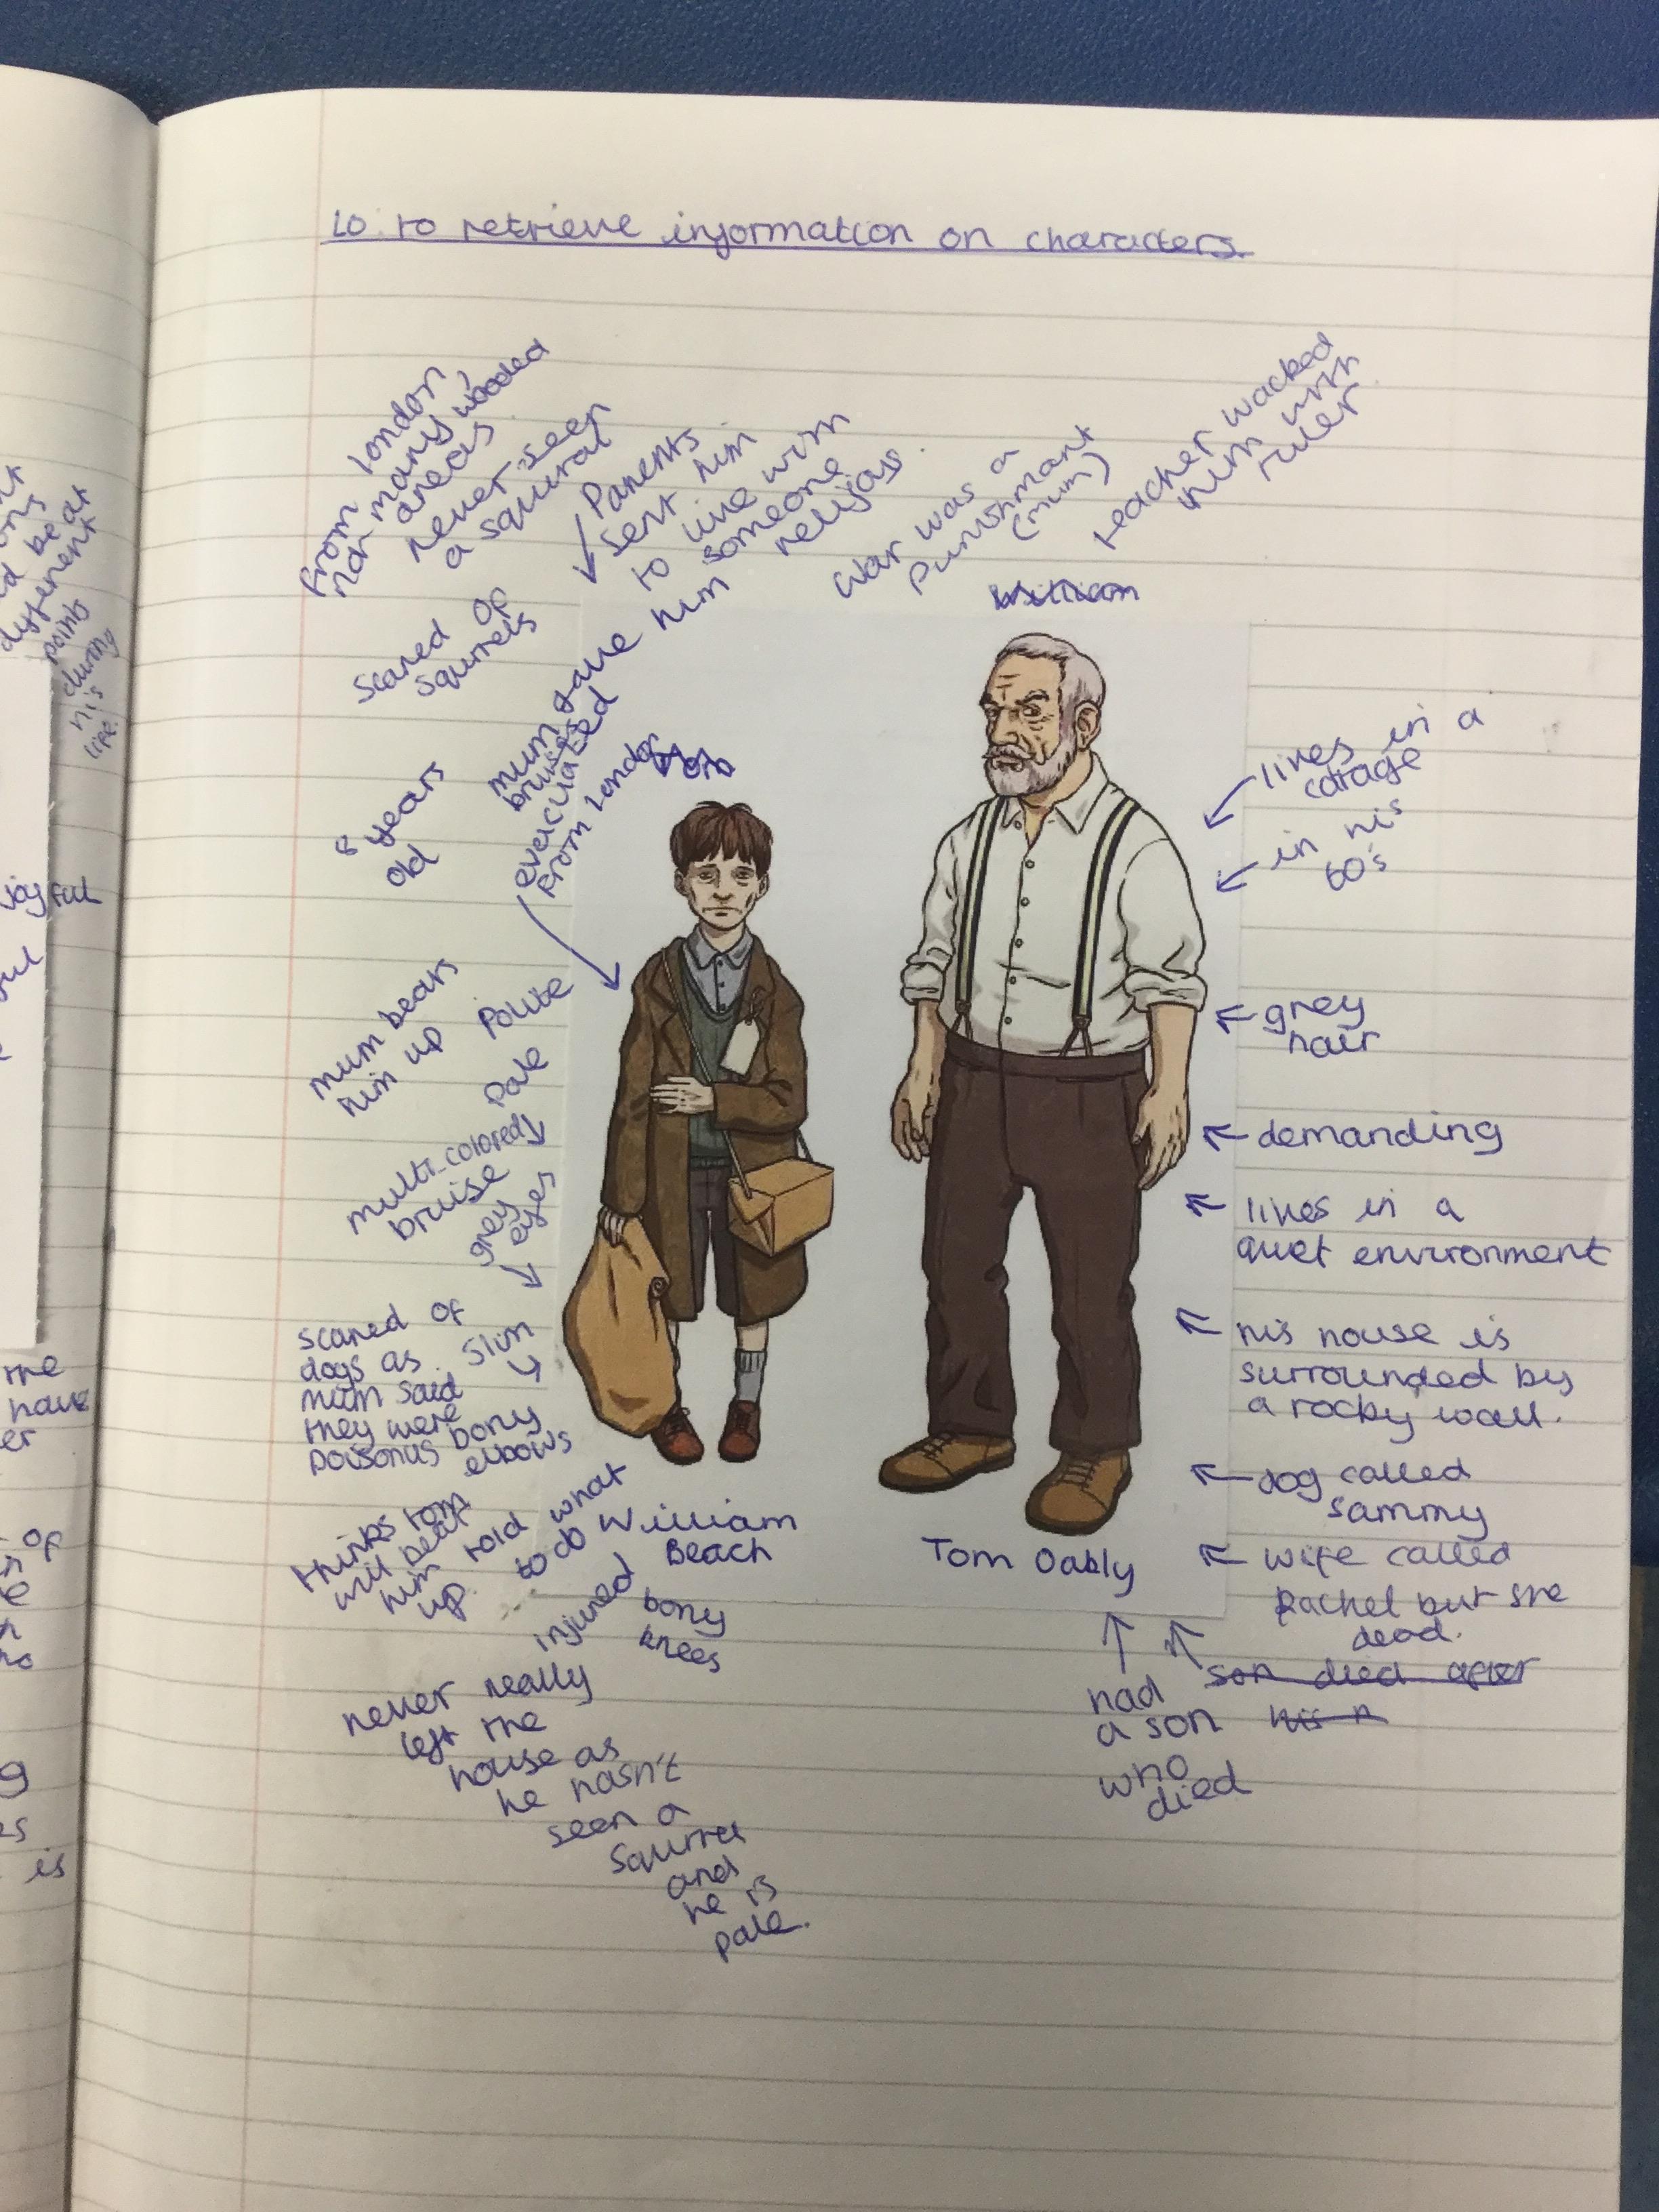 LO: to retrieve information on characters.
From London
not many wooded
areas
never seen
a squiral
Parents
sent him
to live with
someone
relijous.
War was a
Punishmant
(mum)
teacher wacked
him with
ruler
scared of
squirrels
mum gave him
bruises
evacuated
from London
8 years
old
mum bears
him up
Polite
Pale
multi-colored
bruise
grey
eyes
scared of
dogs as
mum said
they were
poisonus
slim
bony
elbows
thinks tom
will beat
him
up.
told what
to do
injured
bony
knees
William
Beach
never really
left the
house as
he hasn't
seen a
squirrel
and
he is
pale.
lives in a
cotage
in his
60's
grey
hair
demanding
lives in a
quiet environment
his house is
surrounded by
a rocky wall.
dog called
sammy
wife called
Rachel but she
dead.
Tom Oakly
had
a son
who
died
son died after
his n
different
points
during
his
life.
joyful
the
have
er
of
is